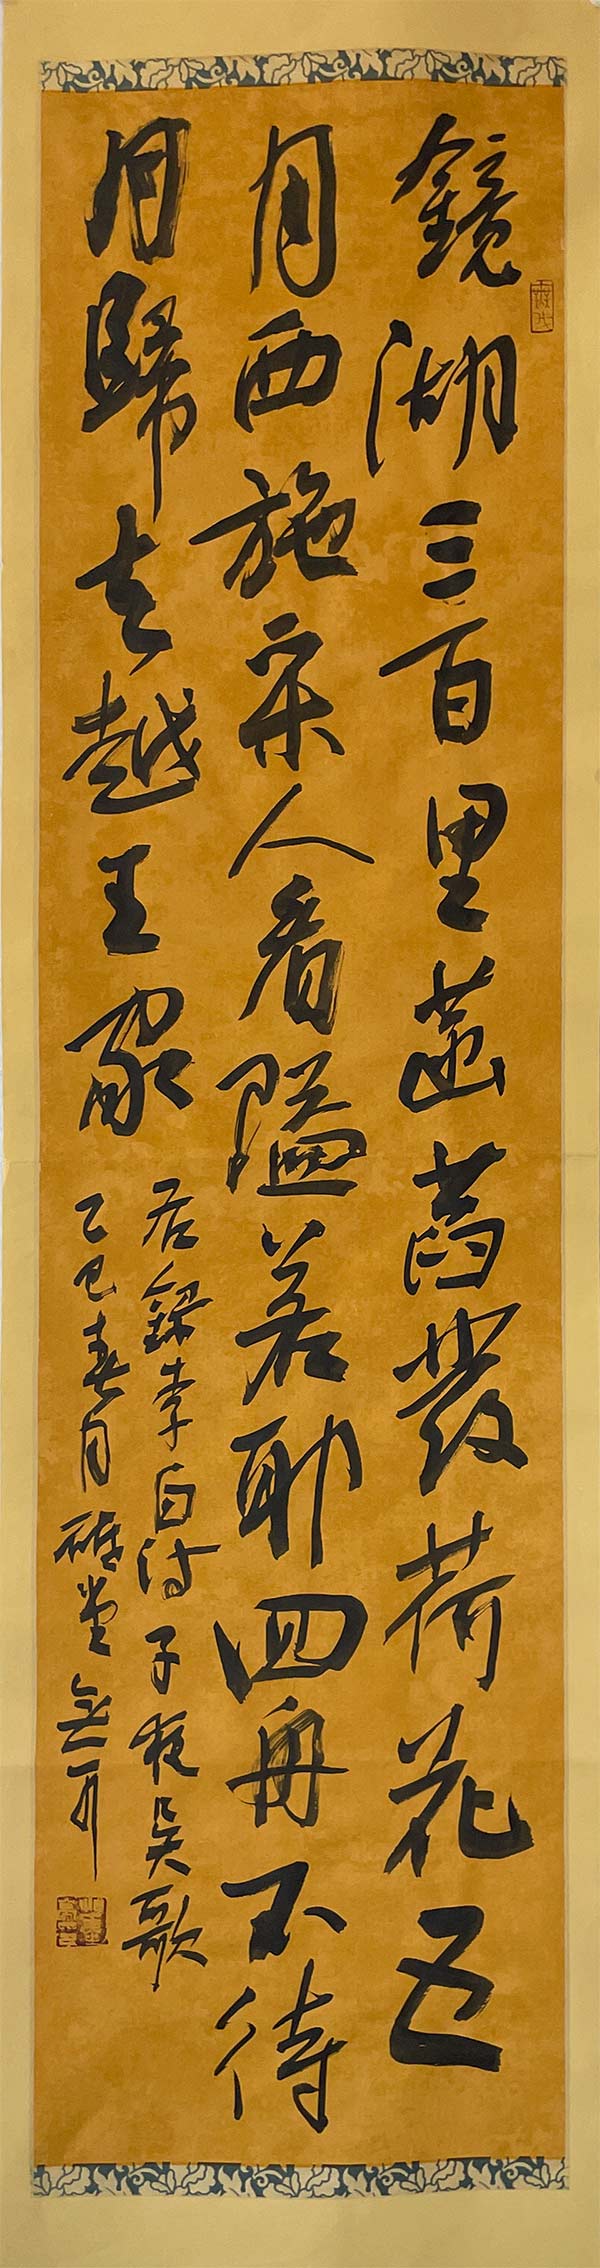 鏡湖三百里菡萏發荷花五
月西施采人看隘若耶回舟不待
月歸去越王家
右錄李白詩子夜吳歌
乙巳春月硯堂